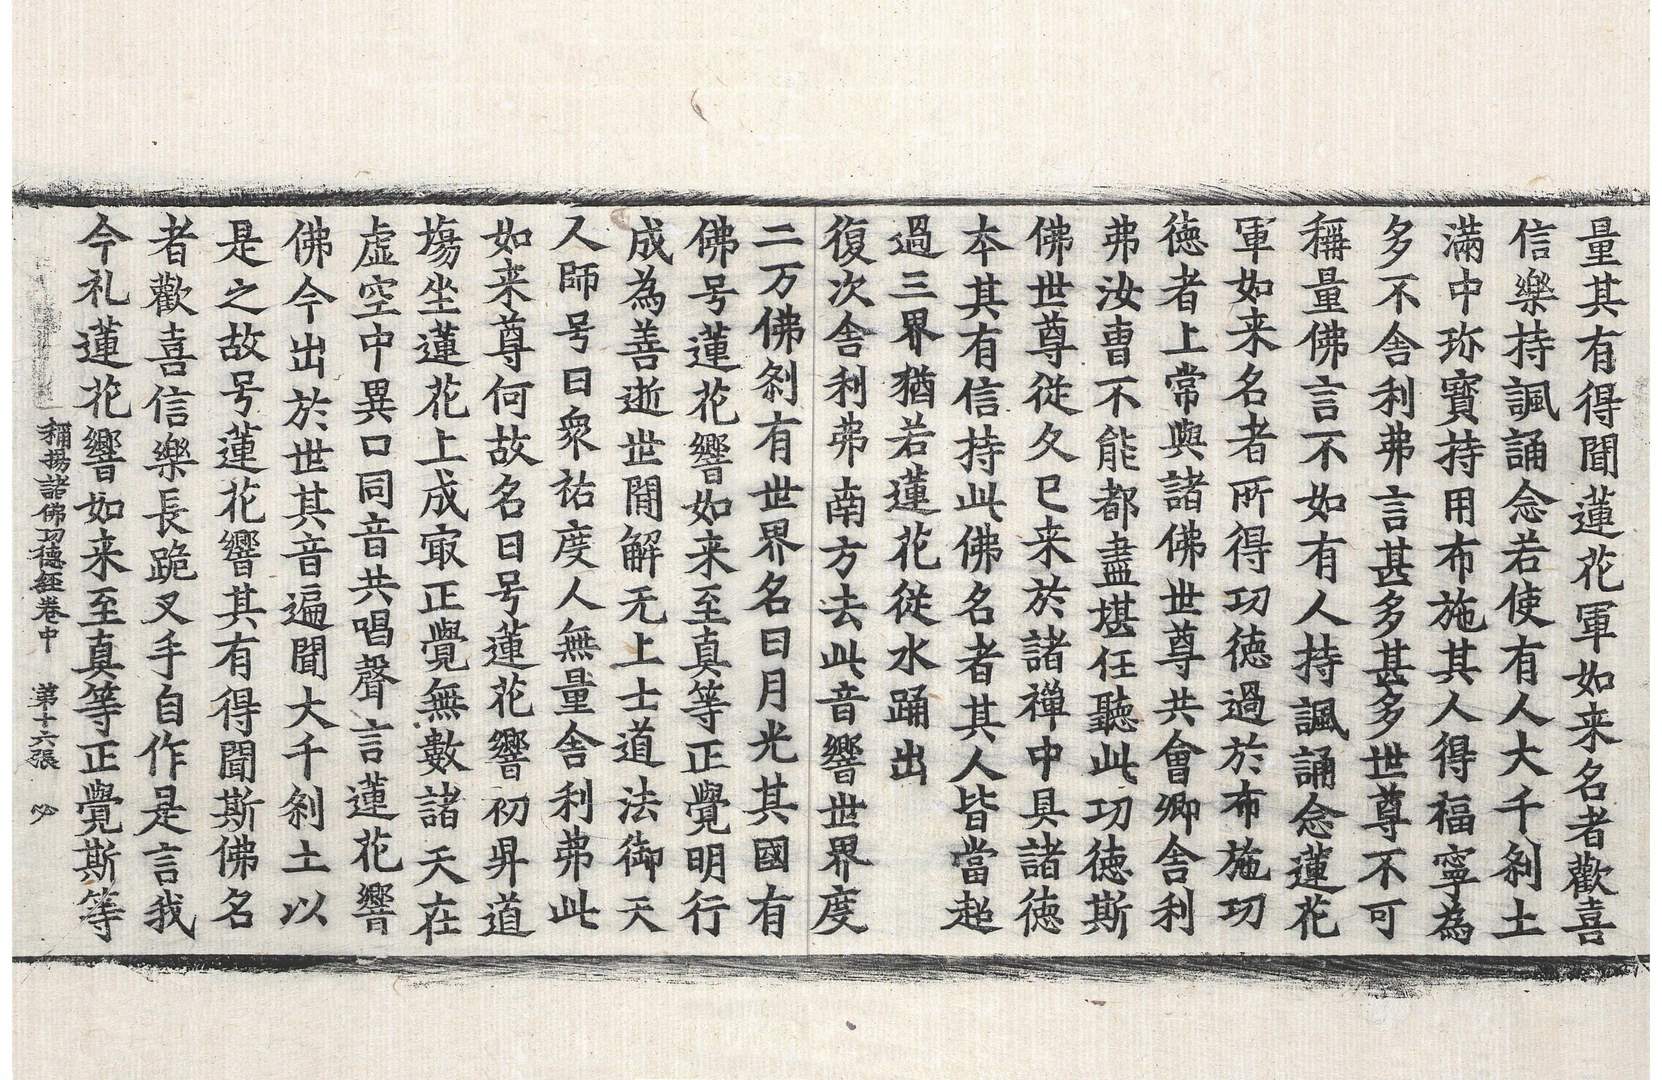 量其有得聞蓮花軍如来名者歡喜
信樂持諷誦念若使有人大千刹土
滿中珎寳持用布施其人得福寧為
多不舍利弗言甚多甚多世尊不可
稱量佛言不如有人持諷誦念蓮花
軍如来名者所得功德過於布施功
德者上常與諸佛世尊共會卿舍利
弗汝曹不能都盡堪任聽此功德斯
佛世尊從久已来於諸禪中具諸德
本其有信持此佛名者其人皆當超
過三界猶若蓮花從水踊出
復次舍利弗南方去此音響世界度
二万佛刹有世界名曰月光其國有
佛号蓮花響如来至真等正覺明行
成為善逝世間解无上士道法御天
人師号曰衆祐度人無量舍利弗此
如来尊何故名曰号蓮花響初昇道
塲坐蓮花上成㝡正覺無數諸天在
虛空中異口同音共唱聲言蓮花響
佛今出於世其音遍聞大千刹土以
是之故号蓮花響其有得聞斯佛名
者歡喜信樂長跪叉手自作是言我
今礼蓮花響如来至真等正覺斯等
稱揚諸佛功德經卷中 第十六張